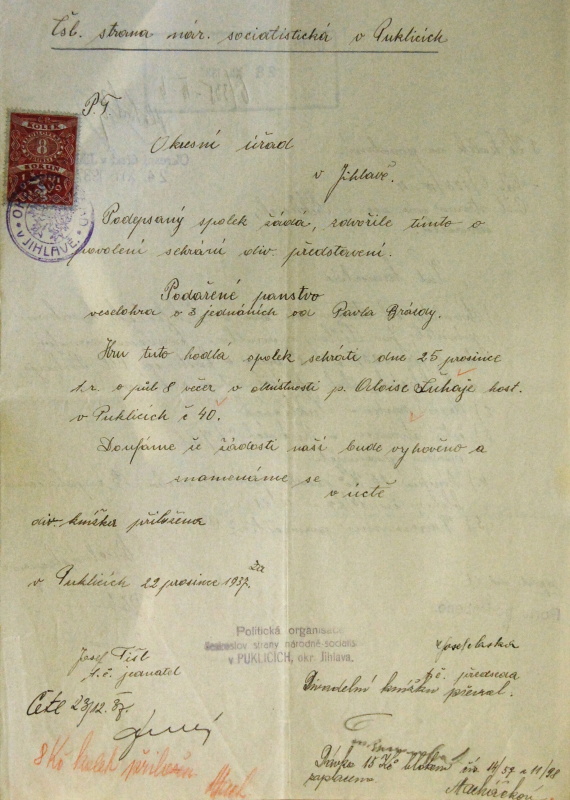 Čsl. strana nár. socialistická v Puklicích
P.T.
KOLEK
8
KORUN
V JIHLAVĚ.
Okresní úřad
v Jihlavě.
Podepsaný spolek žádá, zdvořile tímto o
povolení sehrání div. představení.
Podařené panstvo
veselohra o 3 jednáních od Pavla Brázdy.
Hru tuto hodlá spolek sehráti dne 25 prosince
t.r. o půl 8 večer v místnosti p. Aloise host.
v Puklicích č 40.
Doufáme že žádosti naší bude vyhověno a
znamenáme se
v úctě
div. knížka přiložena
v Puklicích 22 prosince 1937. za
Politická organisace
Českoslov strany národně socialis
v PUKLICÍCH, okr. Jihlava.
Josef
t.č. jednatel
t.č. předseda
Divadelní knížku převzal.
23/12. 37.
8 Kč kolek přiložen
Dávka 15 Kč
zaplacena